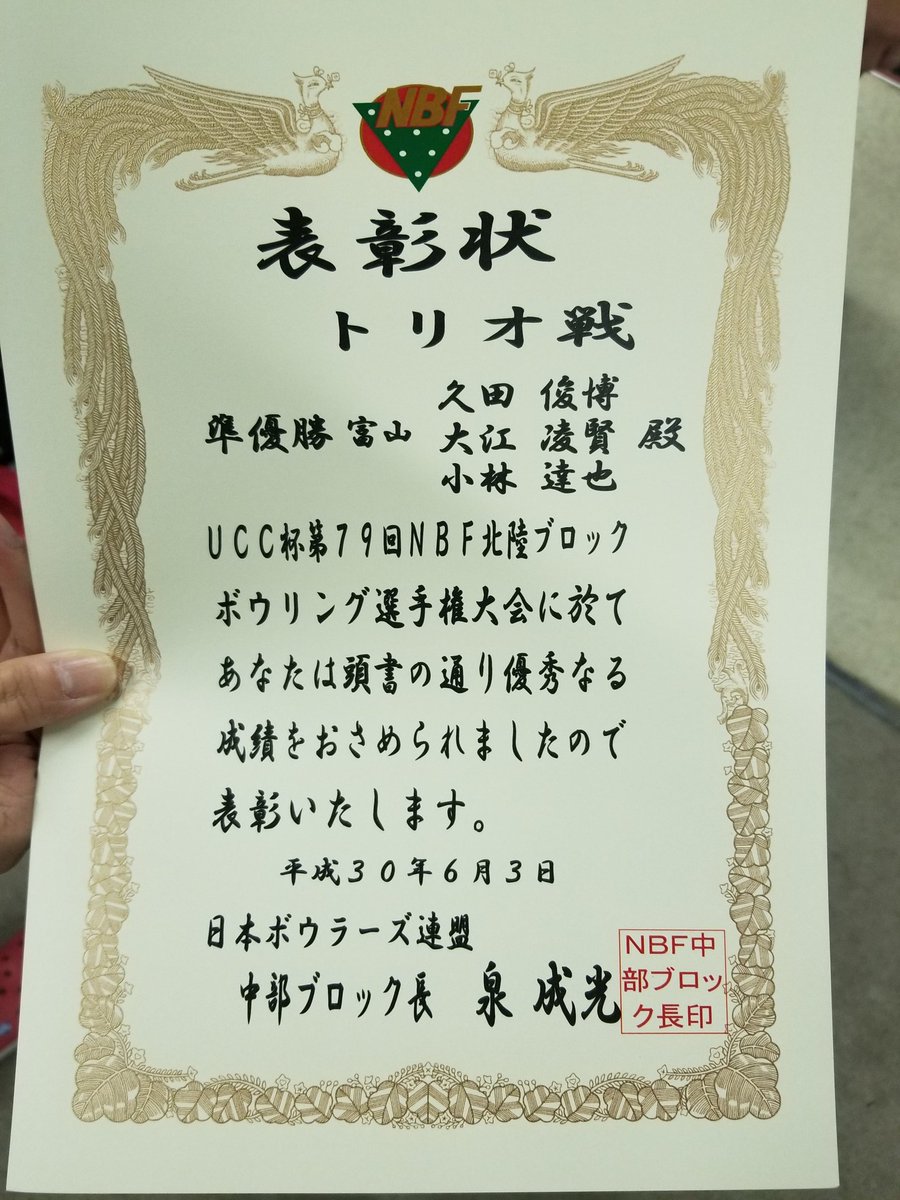 NBF
表彰状
トリオ戦
久田 俊博
準優勝 富山 大江 凌賢 殿
小林 達也
UCC杯第79回NBF北陸ブロック
ボウリング選手権大会に於て
あなたは頭書の通り優秀なる
成績をおさめられましたので
表彰いたします。
平成30年6月3日
日本ボウラーズ連盟
中部ブロック長 泉 成光
NBF中
部ブロッ
ク長印